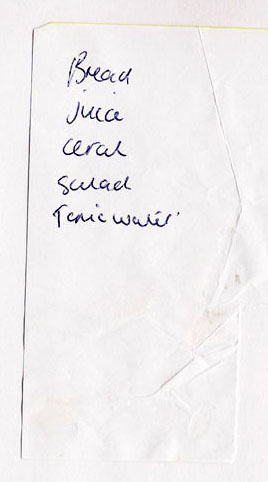 Bread
juice
ceral
salad
Tonic water